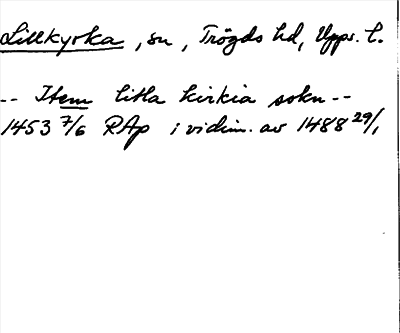 Lillkyrka, sn, Trögds hd, Upps. l.
-- Item litla kirkia sokn --
1453 7/6 RAp i vidim. av 1488 29/1